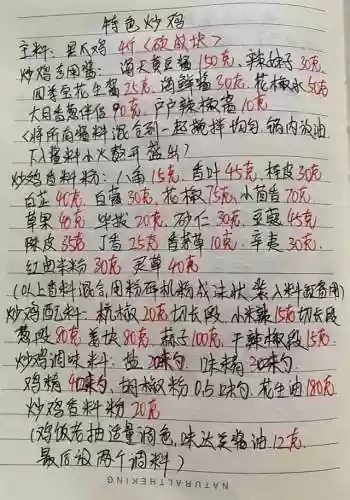 特色炒鸡
主料：黑爪鸡 4斤（砍成块）
炒鸡专用酱：海天黄豆酱150克，辣妹子30克，
四季宝花生酱25克，海鲜酱30克，花椒水50克
大日香葱伴侣90克，户户辣椒酱10克
（将所有酱料混合到一起搅拌均匀，锅内放油
下入酱料小火熬开盛出）
炒鸡香料粉：八角15克，香叶45克，桂皮30克
白芷40克，白蔻30克，花椒75克，小茴香70克
草果40克，毕拨20克，砂仁30克，豆蔻45克
陈皮35克，丁香25克，香茅草10克，辛夷30克，
红曲米粉30克，灵草40克
（以上香料混合，用粉碎机粉成沫状，装入料缸备用）
炒鸡配料：杭椒20克切长段，小米辣15克切长段
葱段80克，姜块80克，蒜子100克，干辣椒段15克，
炒鸡调味料：盐20味勺，味精20味勺
鸡精40味勺，胡椒粉0.5味勺，花生油180克
炒鸡香料粉20克
（鸡饭老抽适量调色，味达美酱油12克，
最后放两个调料）
NATURALTHEKING